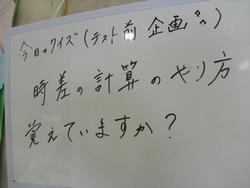 今日のクイズ(テスト前 企画
時差の計算のやり方
覚えていますか?